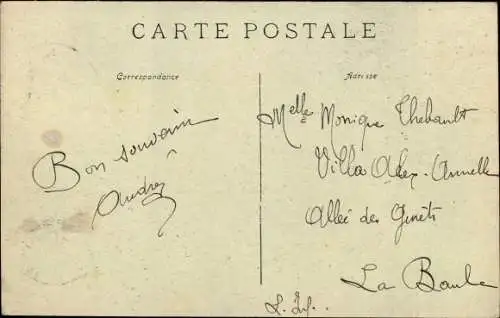 CARTE POSTALE
Correspondance
Adresse
Bon souvenir
Melle Monique Thébault
Villa Alex-Annette
Allée des Genêts
La Baule
L. Inf.